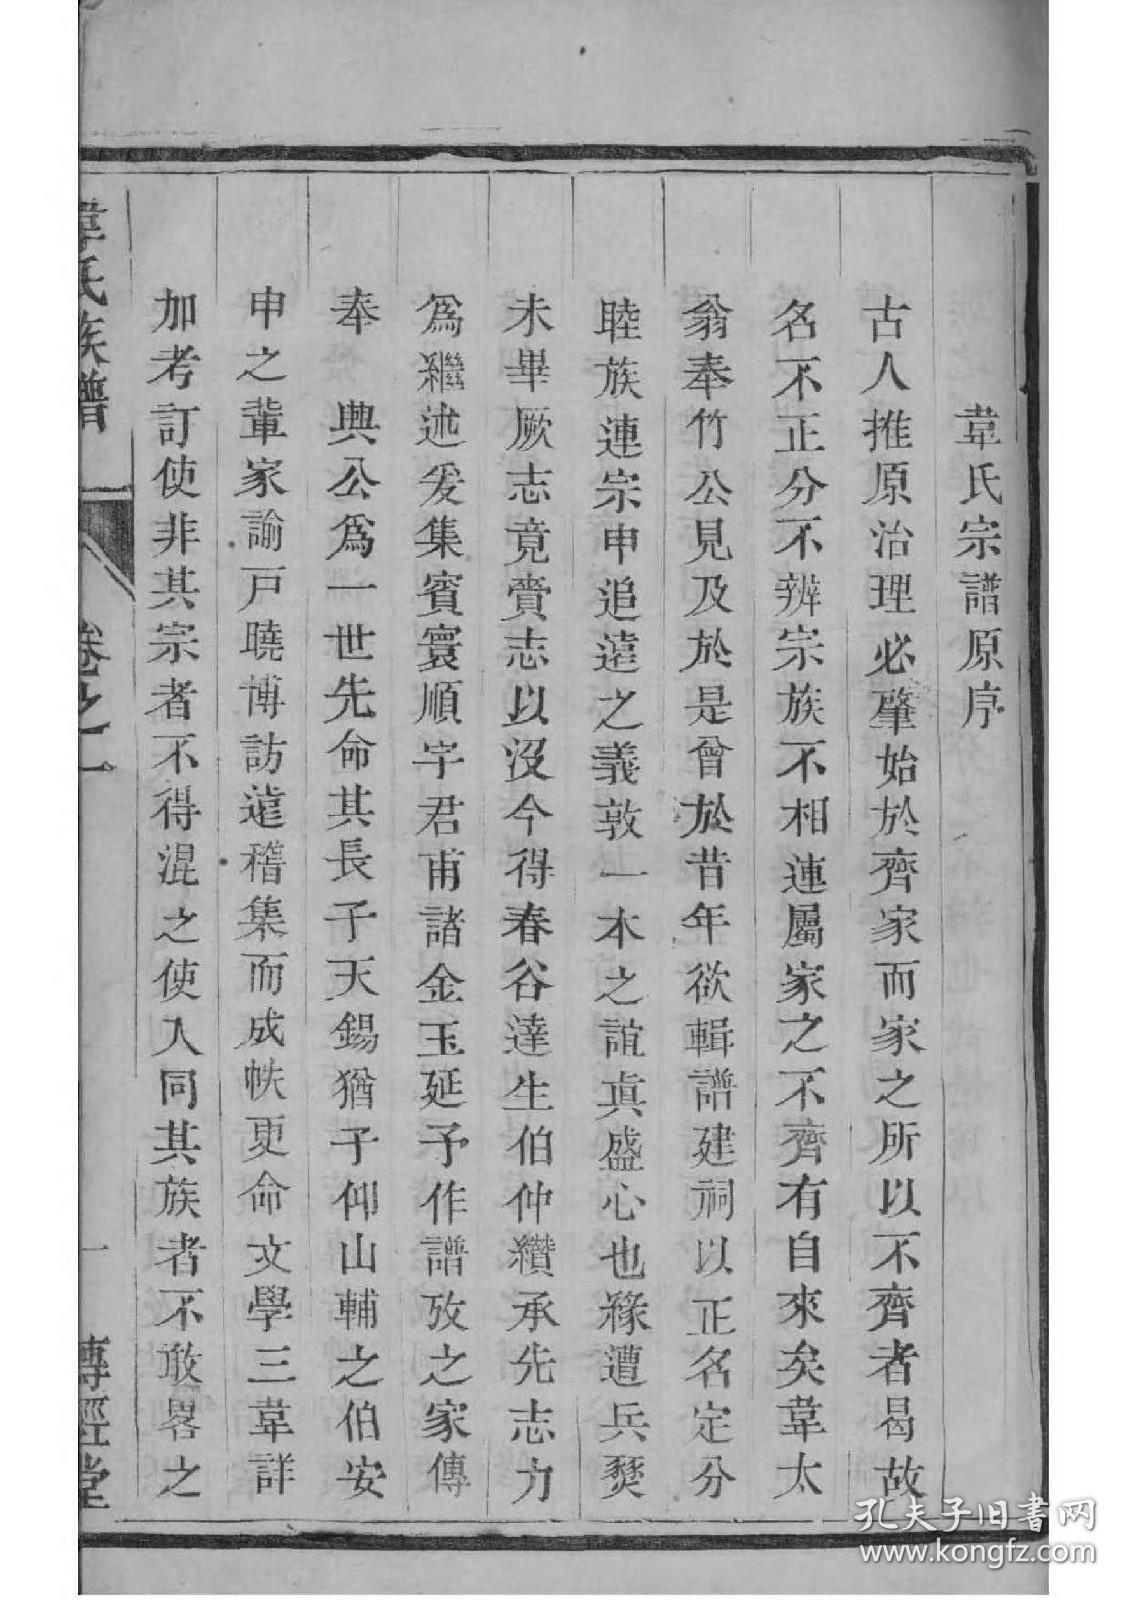 韋氏宗譜原序
古人推原治理必肇始於齊家而家之所以不齊者曷故
名不正分不辨宗族不相連屬家之不齊有自來矣韋太
翁奉竹公見及於是曾於昔年欲輯譜建祠以正名定分
睦族連宗申追遠之義敦一本之誼真盛心也緣遭兵燹
未畢厥志竟賫志以沒今得春谷達生伯仲纘承先志力
為繼述爰集賓寰順宇君甫諸金玉延予作譜攷之家傳
奉　典公為一世先命其長子天錫猶子仰山輔之伯安
申之輩家諭戶曉博訪遠稽集而成帙更命文學三韋詳
加考訂使非其宗者不得混之使人同其族者不敢畧之
韋氏族譜　卷之一　一　傳經堂
孔夫子旧书网
www.kongfz.com